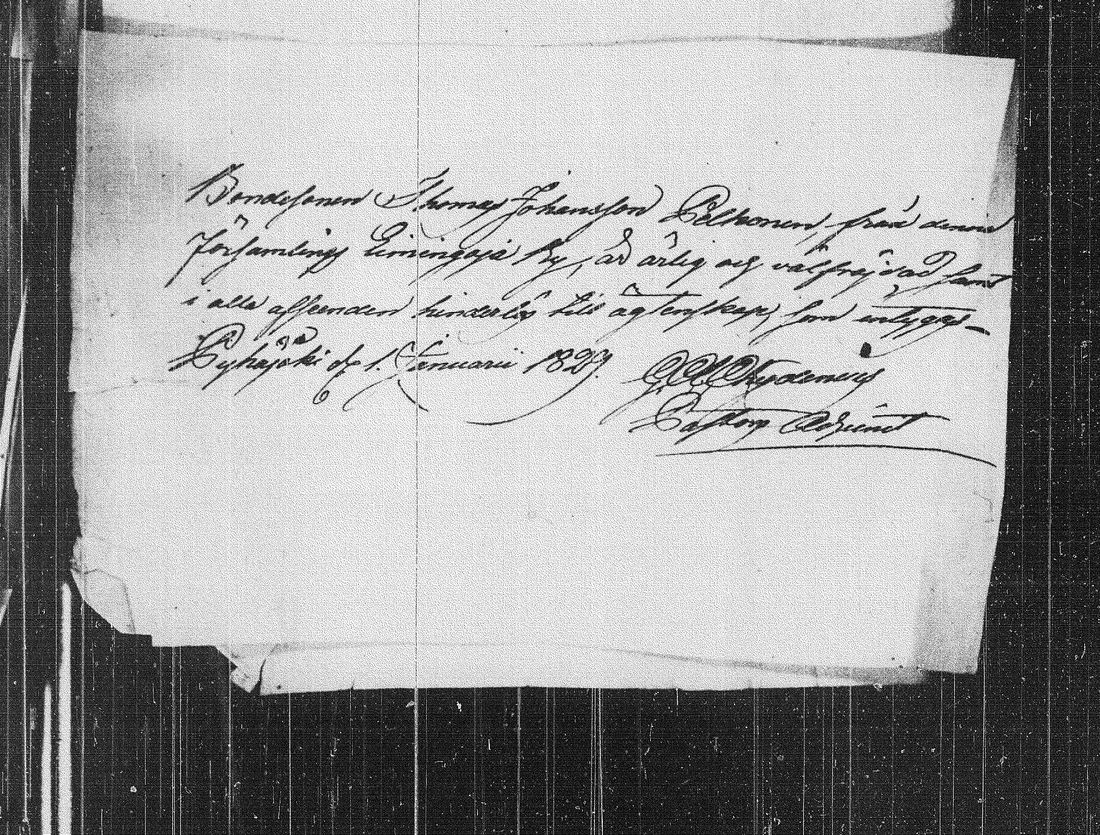 Bondesonen Thomas Johansson Pelkonen, från denna
Församlings Liminggoja by, är ärlig och välfrejdad samt
i alla afseenden hinderlös till ägtenskap, som intygas—
Pyhäjoki d. 1. Januarii 1829. Chydenius
Pastors Adjunct